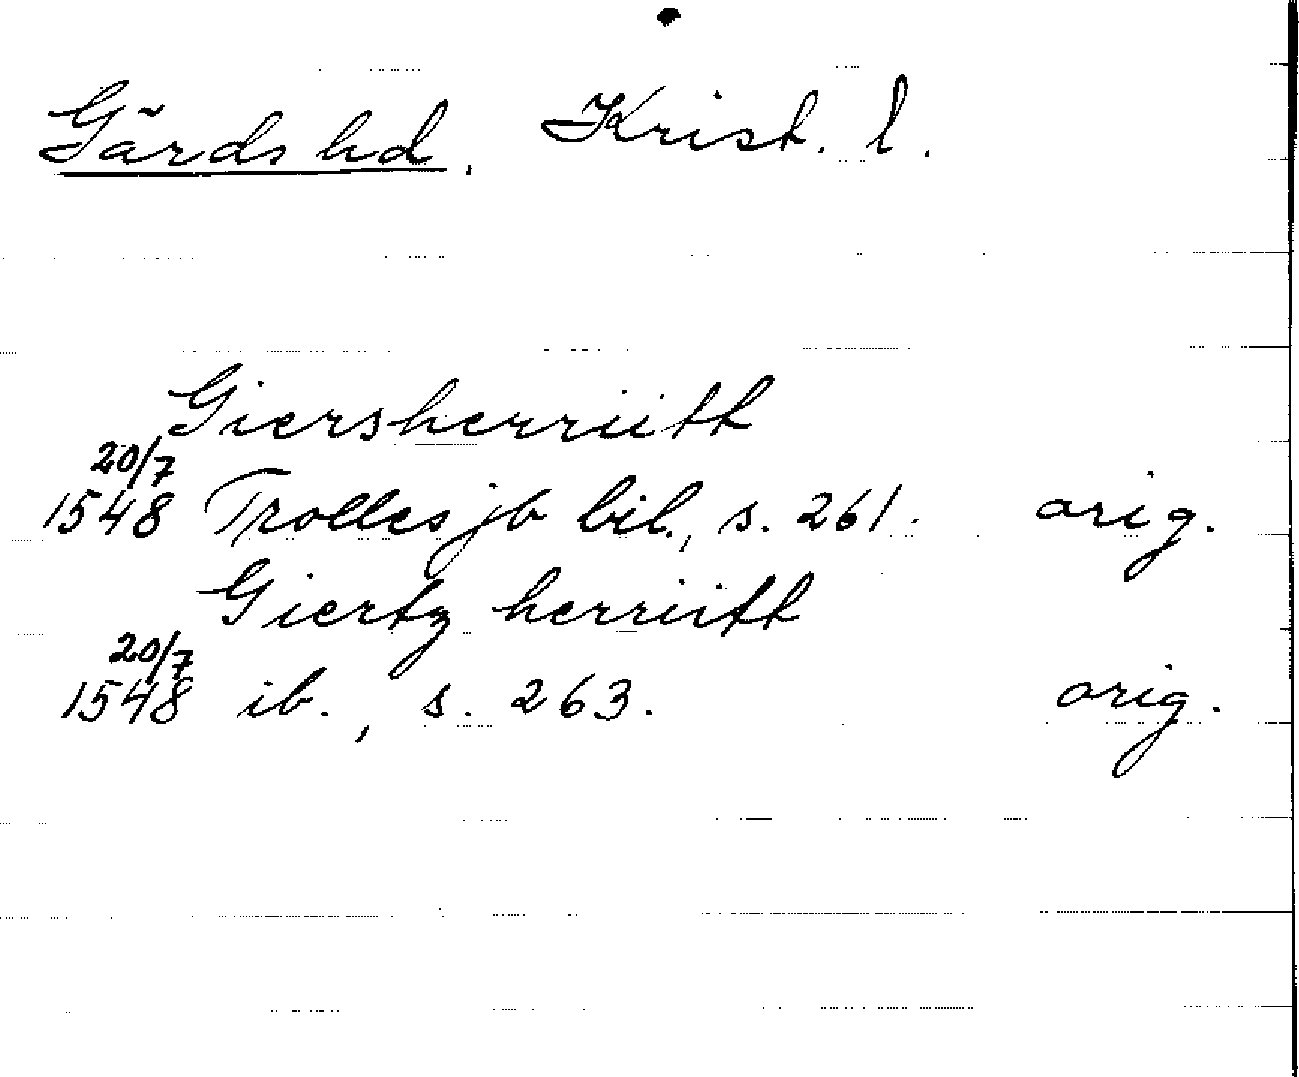 Gärds hd. Krist. l.
Giersherriitt
20/7
1548 Trolles jb bil., s. 261. orig.
Giertz herriitt
20/7
1548 ib., s. 263. orig.